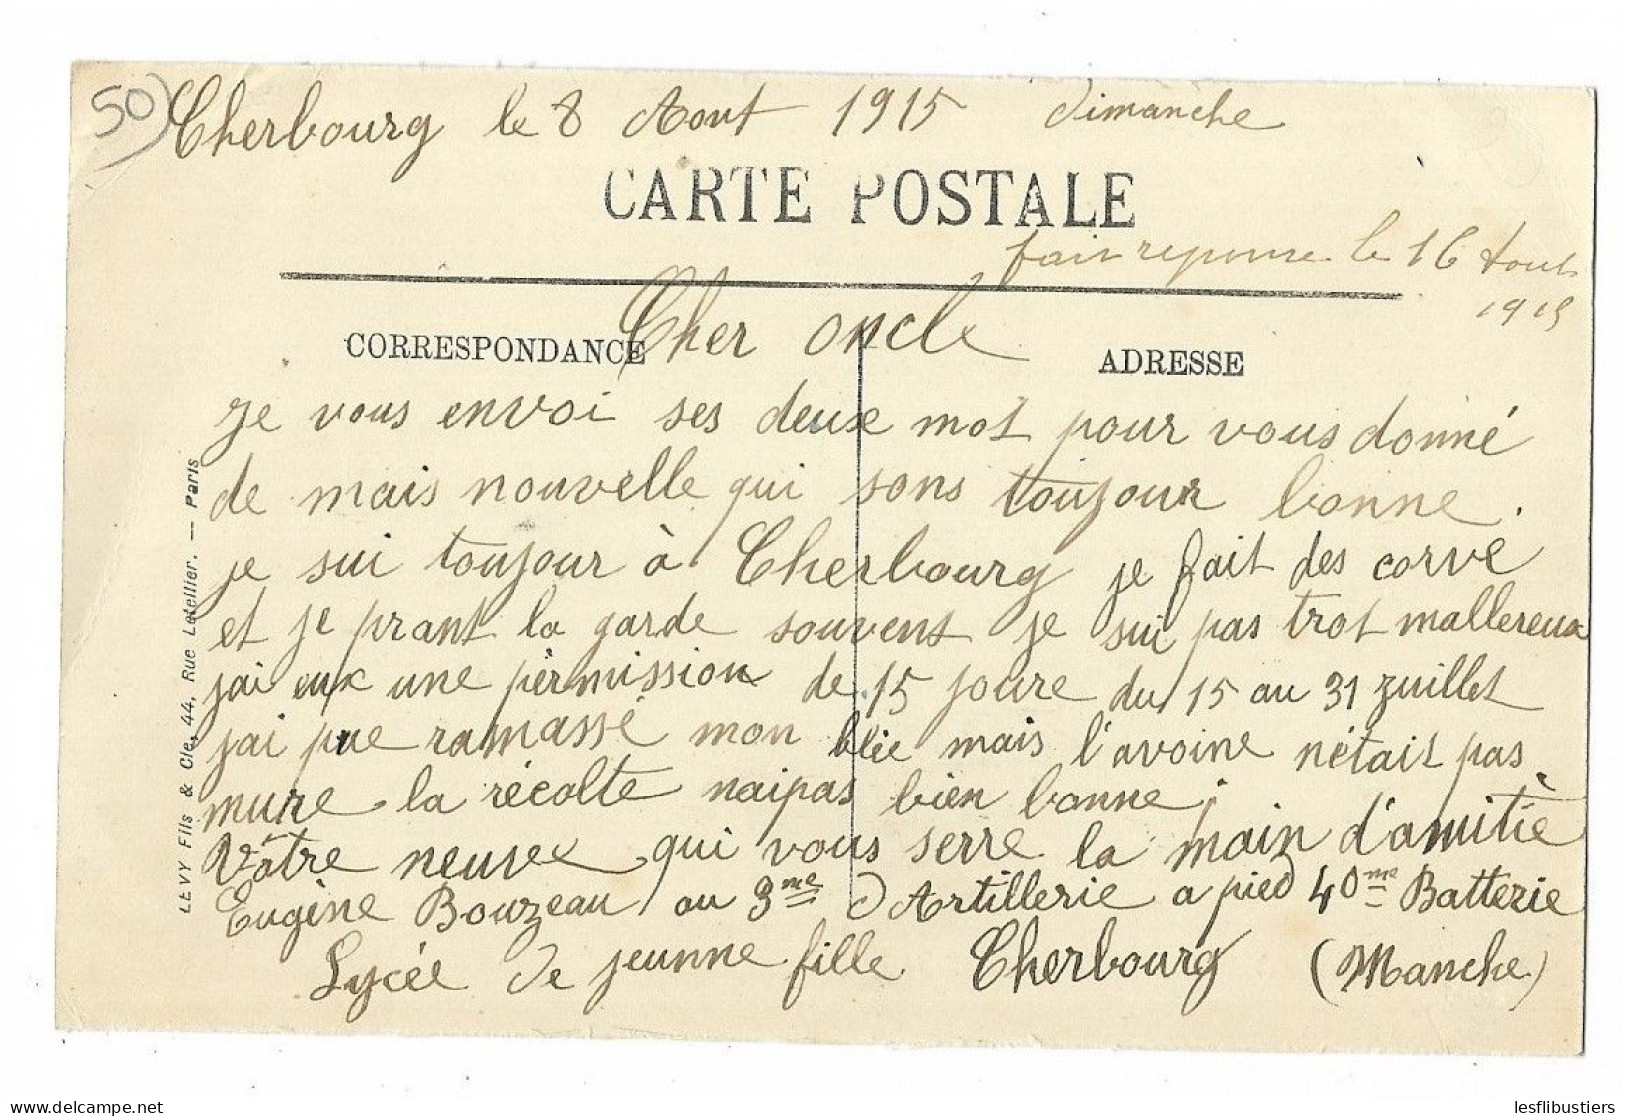 50)
Cherbourg le 8 Aout 1915 dimanche
CARTE POSTALE
fait reponse le 16 Aout
1915
Cher oncle
CORRESPONDANCE
ADRESSE
je vous envoi ses deux mot pour vous donné
de mais nouvelle qui sons toujour bonne.
je sui toujour à Cherbourg je fait des corve
et je prant la garde souvent je sui pas trot mallereux
jai eux une pèrmission de 15 joure du 15 au 31 zuillet
jai pue ramassé mon blée mais l'avoine nétait pas
mure la récolte naipas bien bonne;
Vôtre neuvex qui vous serre la main d'amitiè
Eugène Bouzeau au 3me d'Artillerie a pied 40me Batterie
Lycée de jeunne fille Cherbourg (Manche)
LEVY Fils & Cie, 44, Rue Letellier. — Paris
lesflibustiers